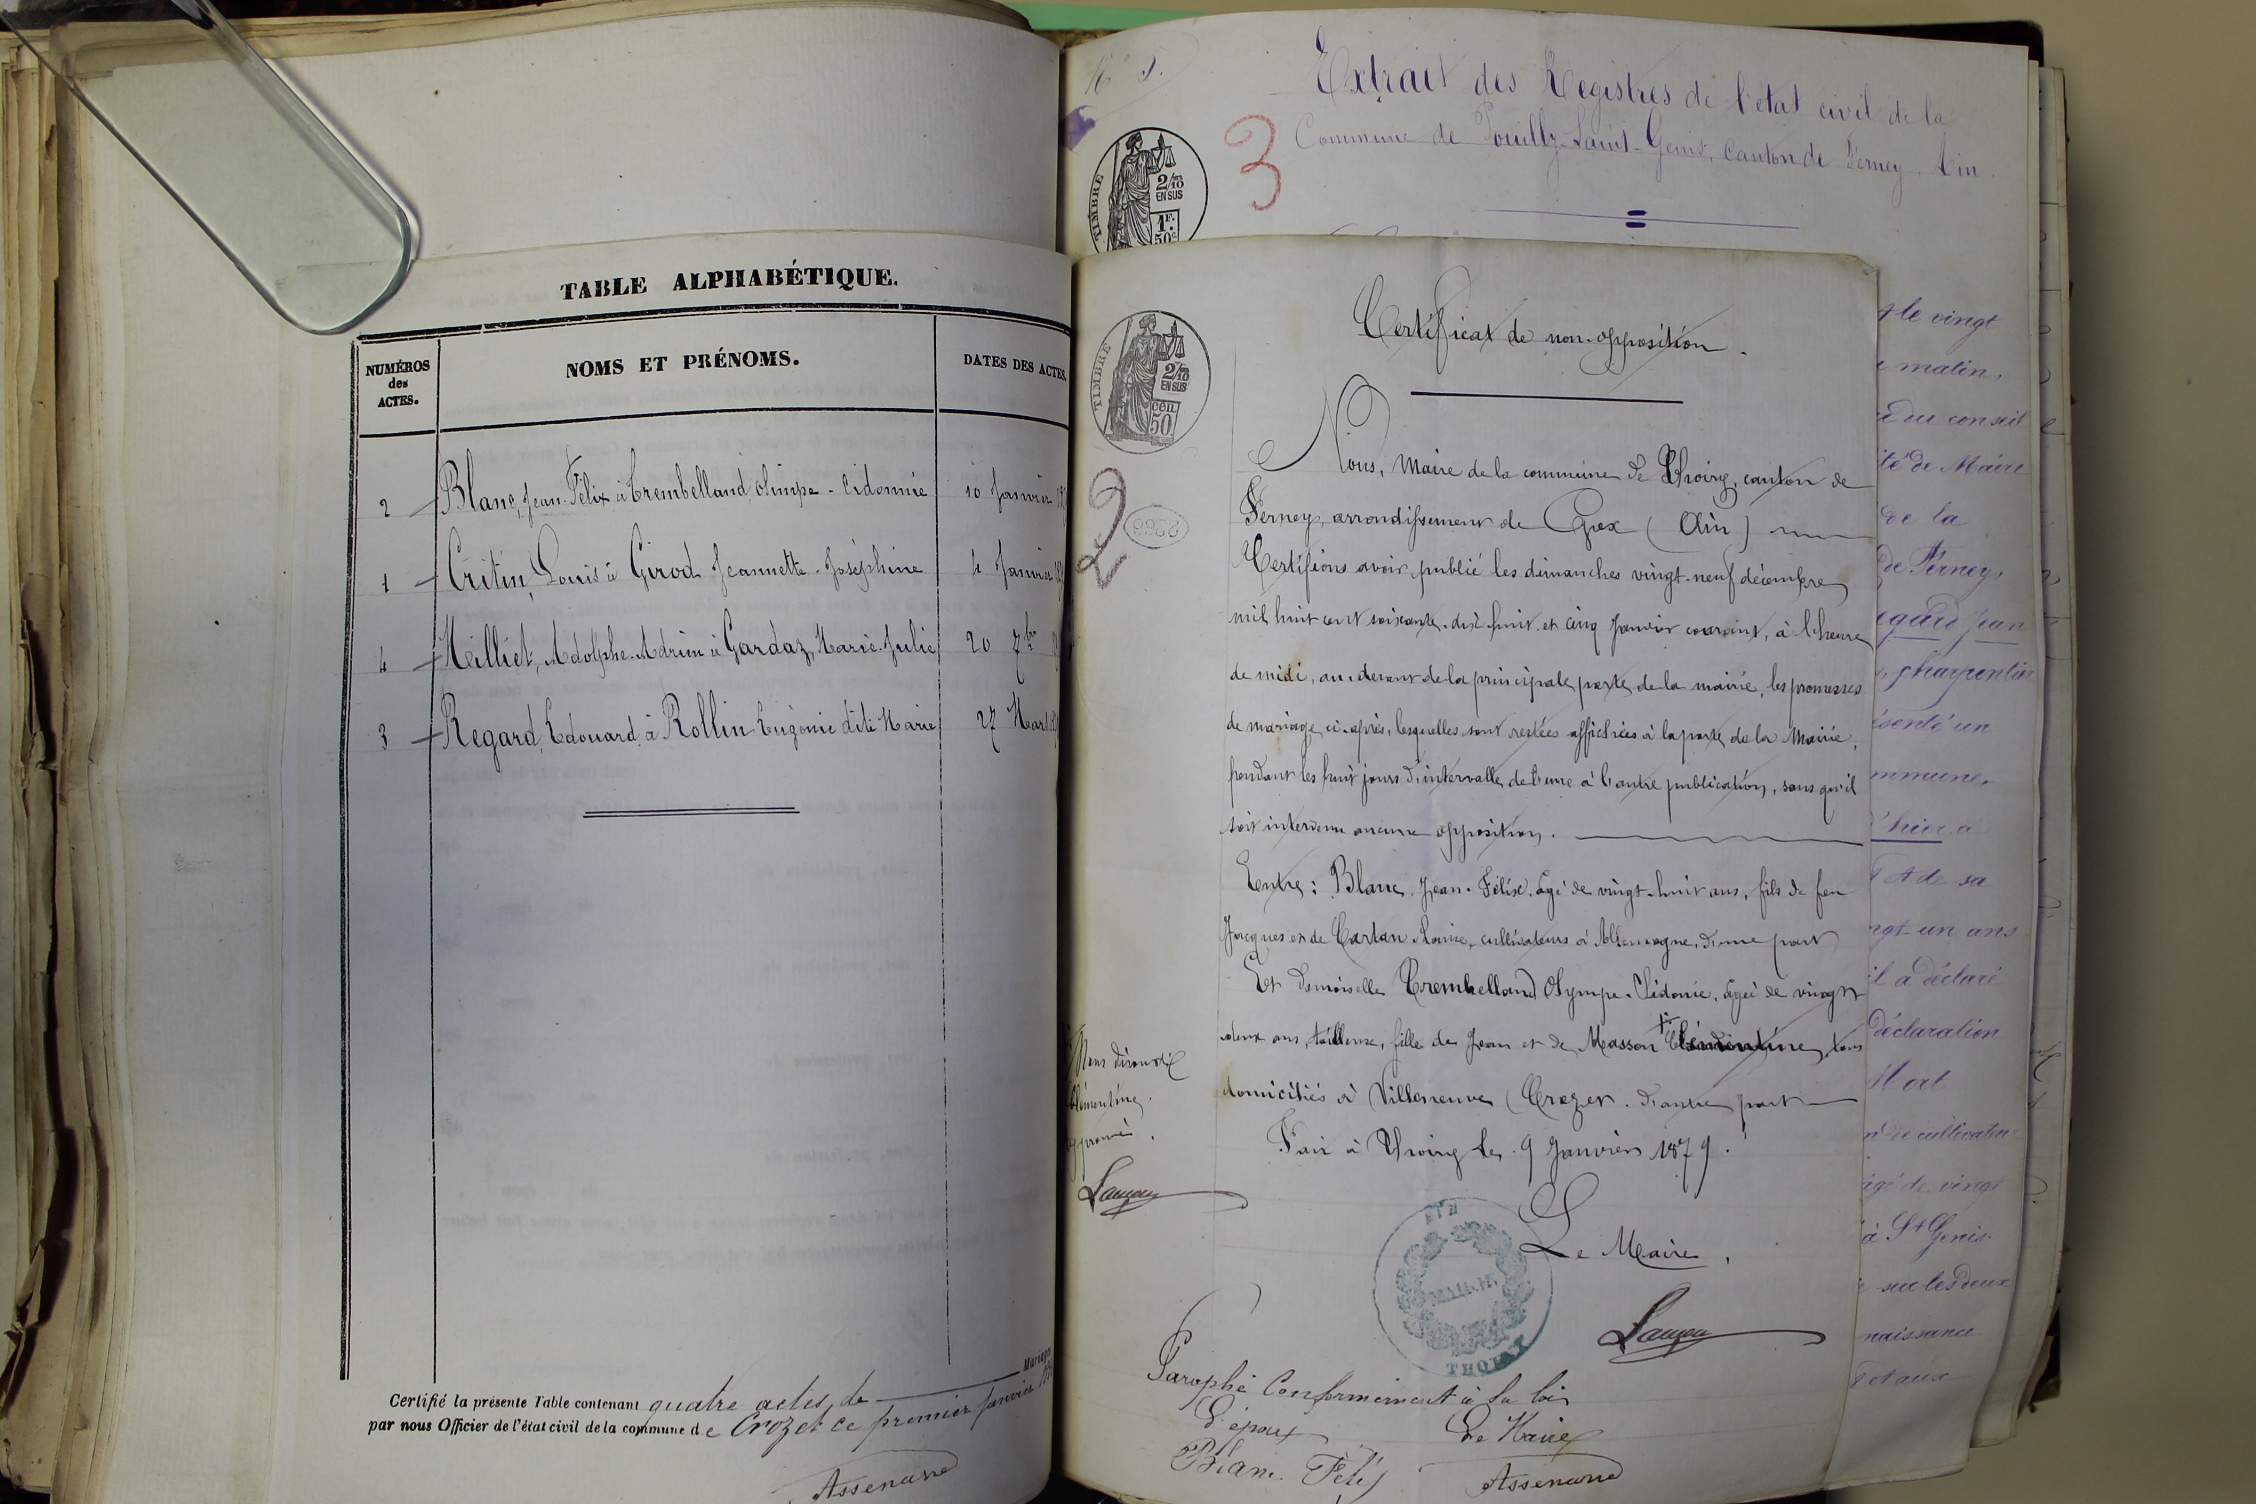 TABLE ALPHABÉTIQUE.
NUMÉROS
des
ACTES.
NOMS ET PRÉNOMS.
DATES DES ACTES.
2 Blanc, Jean-Félix à Trembelland, Olimpe-Cidonnie 10 Janvier
1 Critin, Louis à Girod Jeannette-Joséphine 4 Janvier
4 Milliet, Adolphe-Adrien à Gardaz, Marie-Julie 20 7bre
3 Regard, Edouard à Rollin Eugénie dite Marie 27 Mars
Mariages
Certifié la présente Table contenant quatre actes, de
par nous Officier de l'état civil de la commune de Crozet ce premier Janvier
N° 5.
Extrait des Registres de l'état civil de la
Commune de Pouilly-Saint-Genis, canton de Ferney, Ain.
TIMBRE
2/10
EN SUS
1F.
50c
3
Certificat de non-opposition.
TIMBRE
2/10
EN SUS
CEN.
50
2
Nous, Maire de la commune de Thoiry, canton de
Ferney, arrondissement de Gex (Ain)
Certifions avoir publié les dimanches vingt-neuf décembre
mil huit cent soixante-dix-huit et cinq Janvier courant, à l'heure
de midi, au-devant de la principale porte de la mairie, les promesses
de mariage ci-après, lesquelles sont restées affichées à la porte de la Mairie,
pendant les huit jours d'intervalle de l'une à l'autre publication, sans qu'il
soit intervenu aucune opposition.
Entre : Blanc, Jean-Félix, âgé de vingt-huit ans, fils de feu
Jacques et de Cartan Louise, cultivateurs à Allemogne, d'une part
Et Demoiselle Trembelland Olympe-Sidonie, âgée de vingt
deux ans, tailleuse, fille de Jean et de Masson Clémentine, tous
domiciliés à Villeneuve (Crozet. d'autre part
Fait à Thoiry le 9 Janvier 1879.
Le Maire,
MAIRIE
THOIRY
Clémentine.
approuvé.
Paraphé Conformément à la loi
L'époux
Le Maire
Blanc Félix
et le vingt
matin,
du conseil
de Maire
de la
de Ferney,
Regard Jean
charpentier
présenté un
commune,
d'hier a
et de sa
vingt-un ans
il a déclaré
déclaration
Mort
cultivateur
âgé de vingt
à St Genis.
sur les deux
naissance
et aux